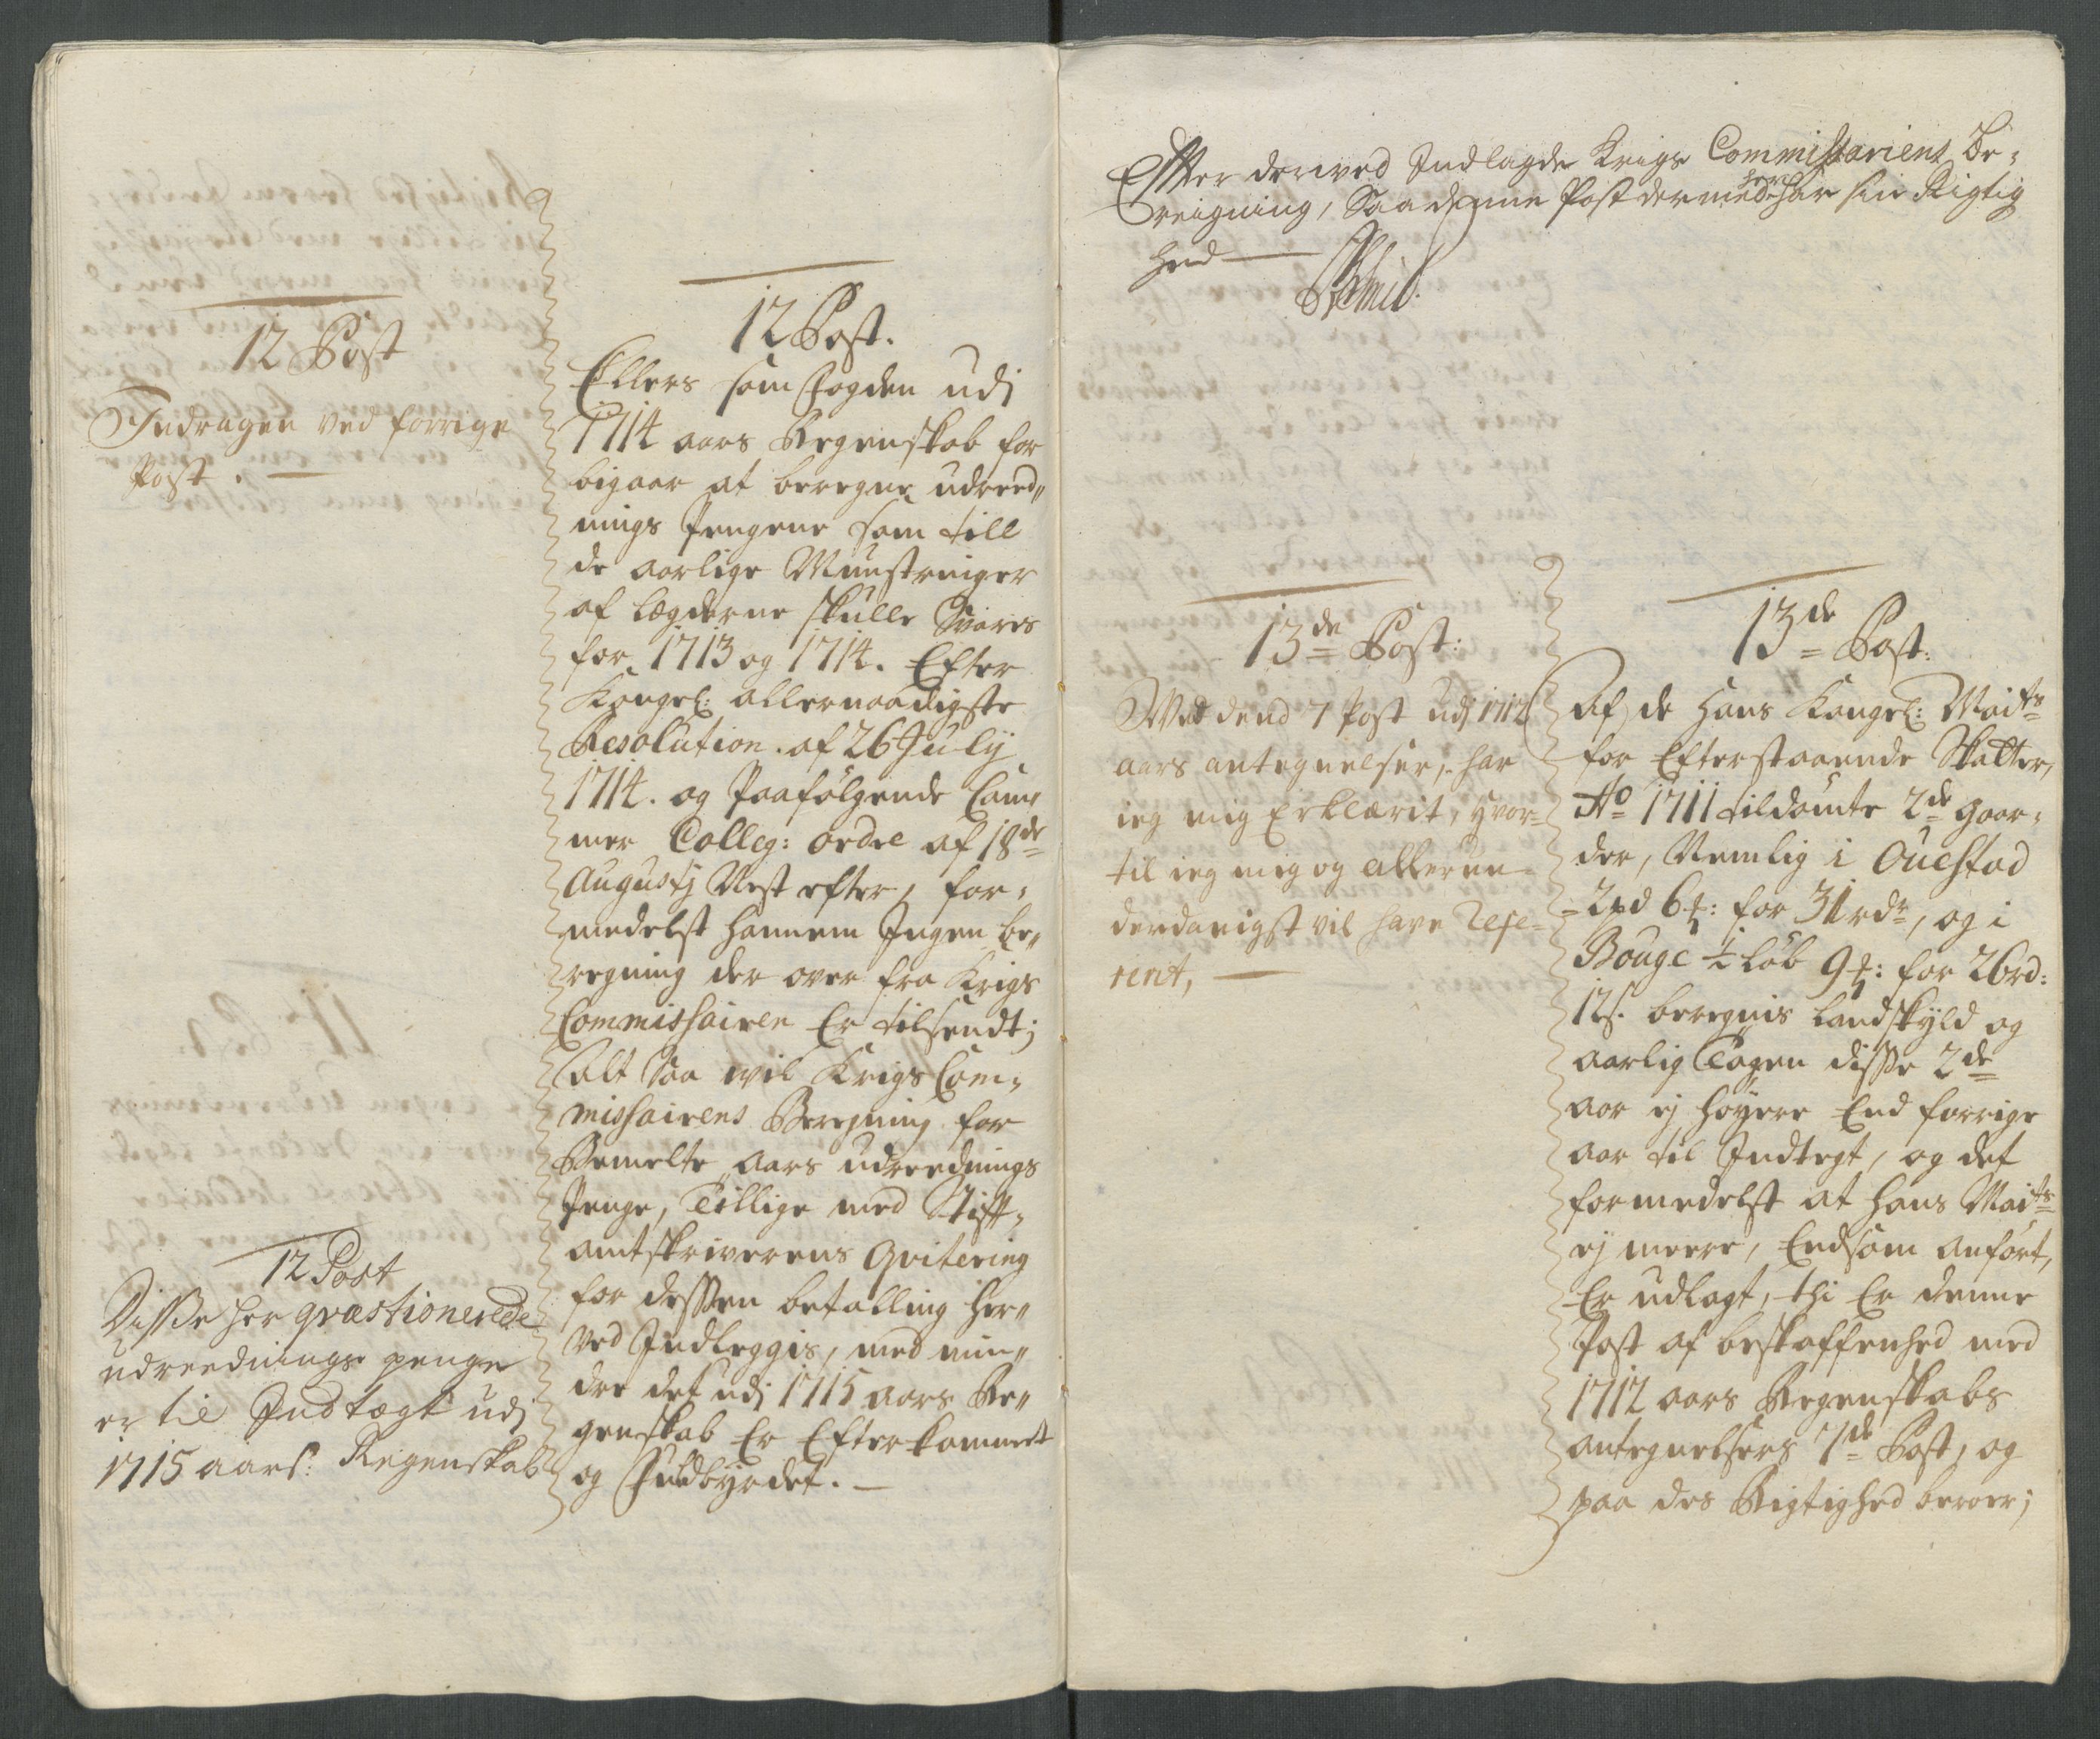 12 Post
Indragen ved forrige
Post.
12 Post
Disse her qvæstionerede
udreednings penge
er til Indtægt udj
1715 aars: Regenskab
12 Post.
Ellers som Fogden udj
1714 aars Regenskab for
bigaar at beregne udreed„
nings Pengene som till
de aarlige Munstringer
af Legderne skulle Svaris
for 1713 og 1714. Efter
Kongel: allernaadigste
Resolution af 26 July
1714. og Paafölgende Cam„
mer Colleg: ordre af 18de
Augustj Nest efter, for„
medelst hannem Ingen be„
regning der over fra Krigs
Commissairen Er tilsendt;
Alt Saa wil Krigs Com„
missairens Beregning for
Bemelte aars udreednings
Penge, Tillige med Stift„
amtskriverens Qvitering
for dessen betalling her„
ved Indleggis, med min„
dre det udj 1715 aars Re„
genskab Er Efterkommet
og Fuldbyrdet.
Efter derved Indlagde Krigs Commissariens Be„
reigning, Saa denne Post dermed her har sin Rigtig
hed
13de Post:
Ved dend 7 Post udj 1712
aars antegnelser, har
ieg mig Erklærit, hvor=
til ieg mig og allerun=
derdanigst vil have refe=
rerit,
13de Post:
Af de Hans Kongel: Maits
for Efterstaaende Skatter,
Ao 1711 tildömte 2de gaar„
der, Nemlig i Ouestad
2pd 6 : for 31 rdr, og i
Bouge ½ löb 9 : for 26rd:
12s. beregnis Landskyld og
aarlig Tagen disse 2de
aar ej höyere End forrige
aar til Indtegt, og det
formedelst at Hans Maits
ej meere, End som anfört,
Er udlagt, thi Er denne
Post af beskaffenhed med
1712 aars Regenskabs
antegnelsers 7de Post, og
paa des Rigtighed beroer;